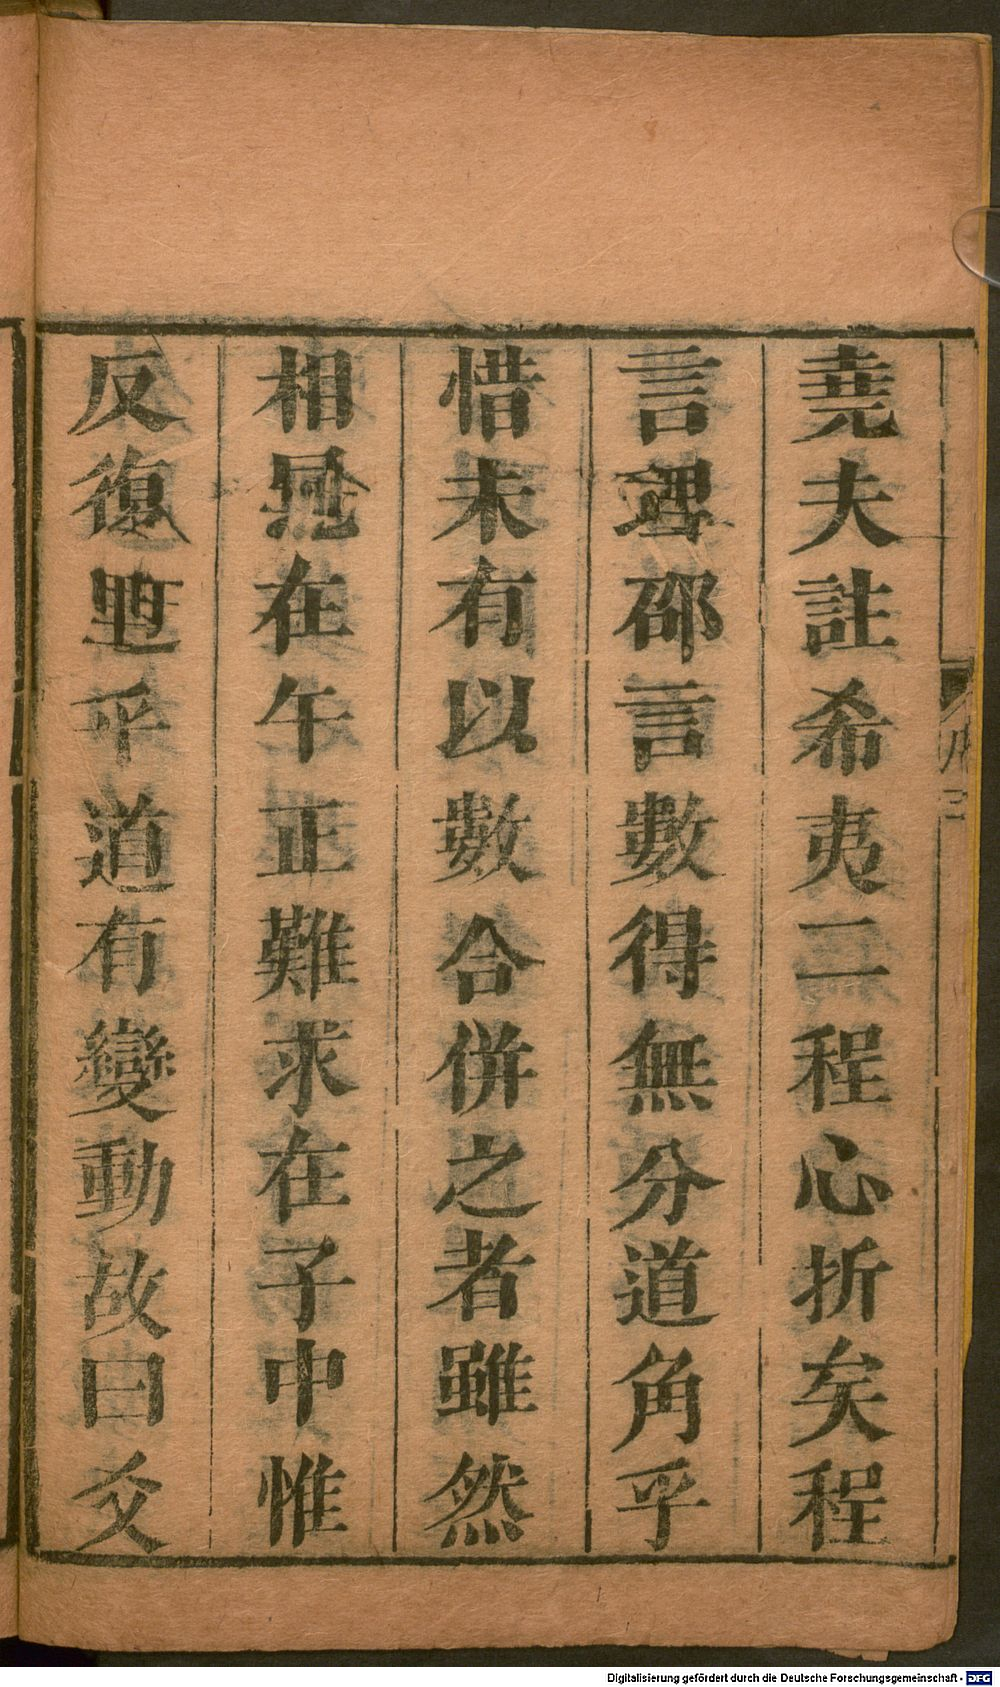 堯夫註希夷二程心折矣程
言理邵言數得無分道角乎
惜未有以數合併之者雖然
相在午正難求在子中惟
反復乎道有變動故曰爻
Digitalisierung gefördert durch die Deutsche Forschungsgemeinschaft - DFG